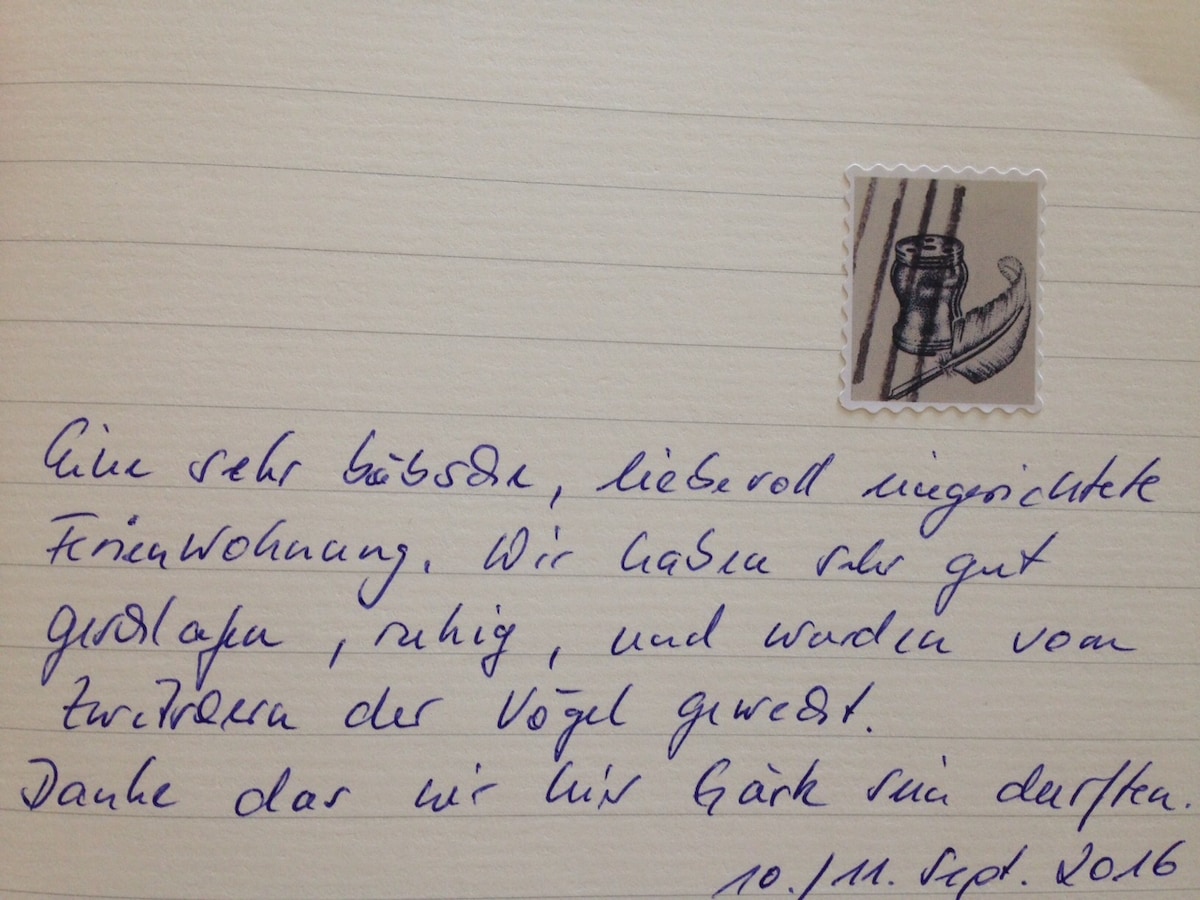 Eine sehr hübsche, liebevoll eingerichtete
Ferienwohnung. Wir haben sehr gut
geschlafen, ruhig, und wurden vom
Zwitschern der Vögel geweckt.
Danke das wir hier Gäste sein durften.
10./11. Sept. 2016